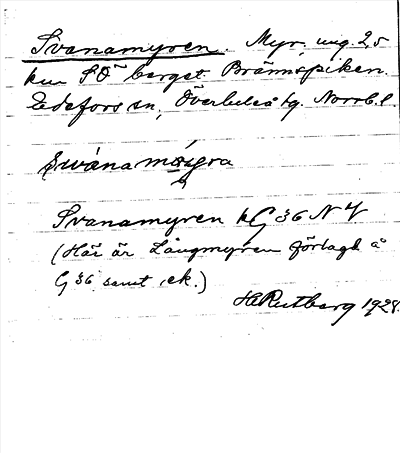 Svanamyren. Myr. ung. 2,5
km SÖ berget Brännspiken.
Edefors sn, Överluleå tg. Norrb. l.
Svanamyren kG 36 NV
(Här är Långmyren förlagd å
G 36 samt ek.)
H Rutberg 1928.